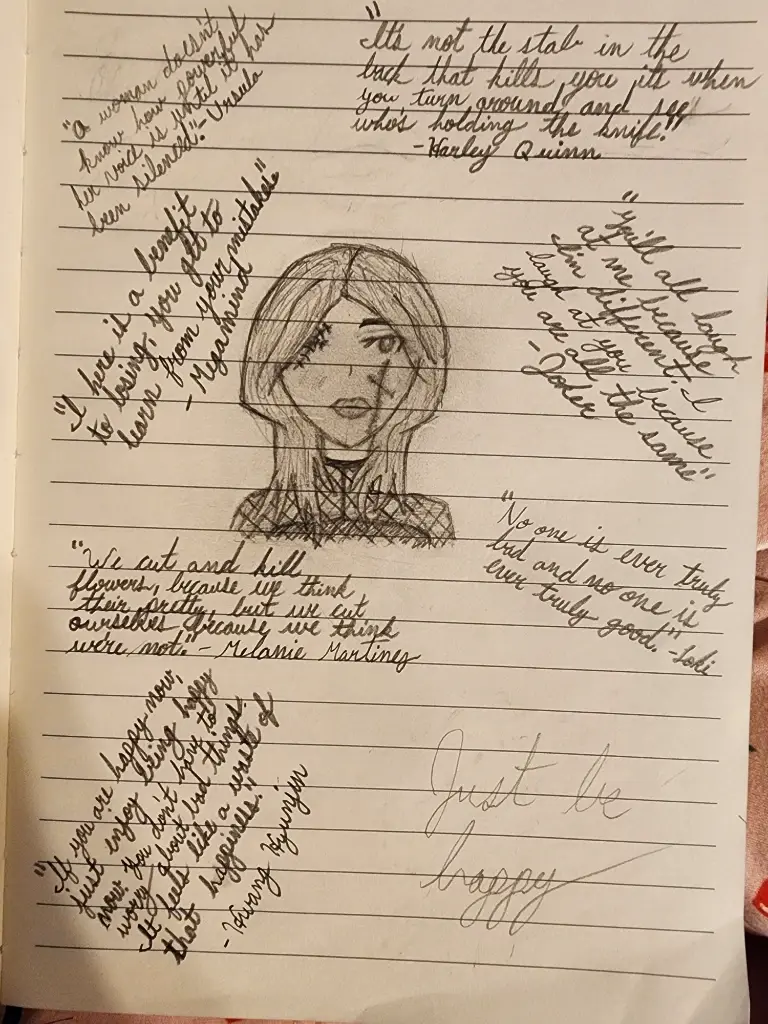 "A woman doesn't
know how powerful
her voice is until it has
been silenced."-Ursula
"It's not the stab in the
back that kills you its when
you turn around and see
who's holding the knife."
-Harley Quinn
"There is a benefit
to losing, you get to
learn from your mistakes"
-Megamind
"You'll all laugh
at me because
I'm different. I
laugh at you because
you are all the same"
-Joker
"No one is ever truly
bad and no one is
ever truly good."-Loki
"We cut and kill
flowers, because we think
their pretty, but we cut
ourselves because we think
we're not."-Melanie Martinez
"If you are happy now,
just enjoy being happy
now. You don't have to
worry about bad things.
It feels like a waste of
that happiness."
-Hwang Hyunjin
Just be
happy